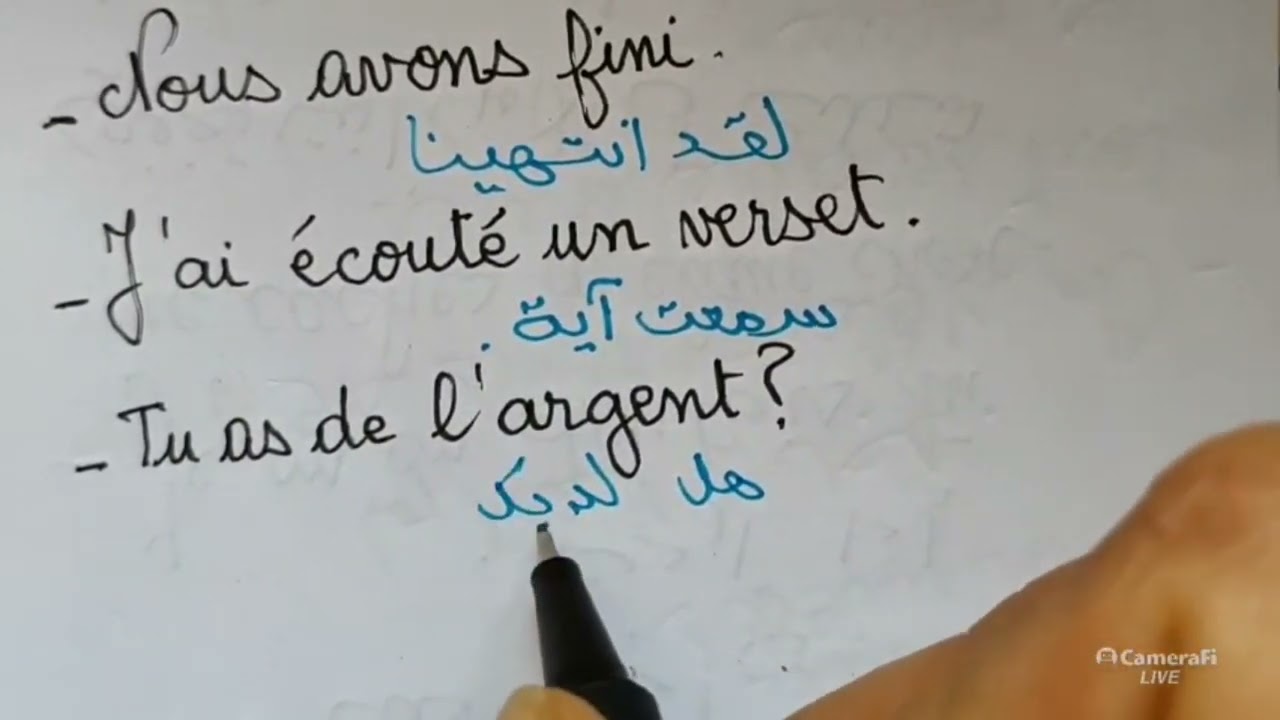 - Nous avons fini.
لقد انتهينا
- J'ai écouté un verset.
سمعت آية.
- Tu as de l'argent?
هل لديك
CameraFi
LIVE